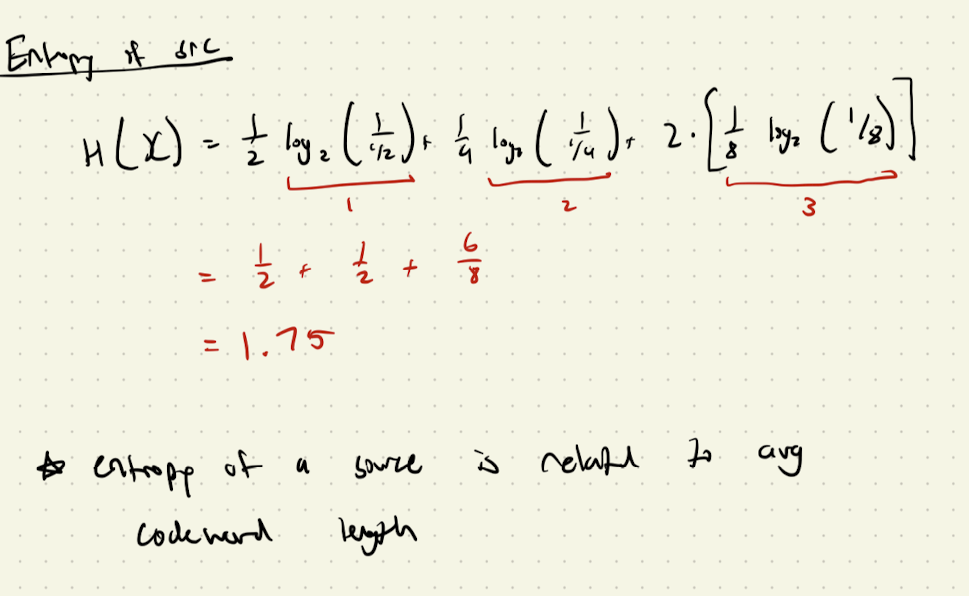 Entropy of src
H(X) = 1/2 log₂ (1/(1/2)) + 1/4 log₂ (1/(1/4)) + 2 · [1/8 log₂ (1/8)]
1 2 3
= 1/2 + 1/2 + 6/8
= 1.75
☆ entropy of a source is related to avg
codeword length